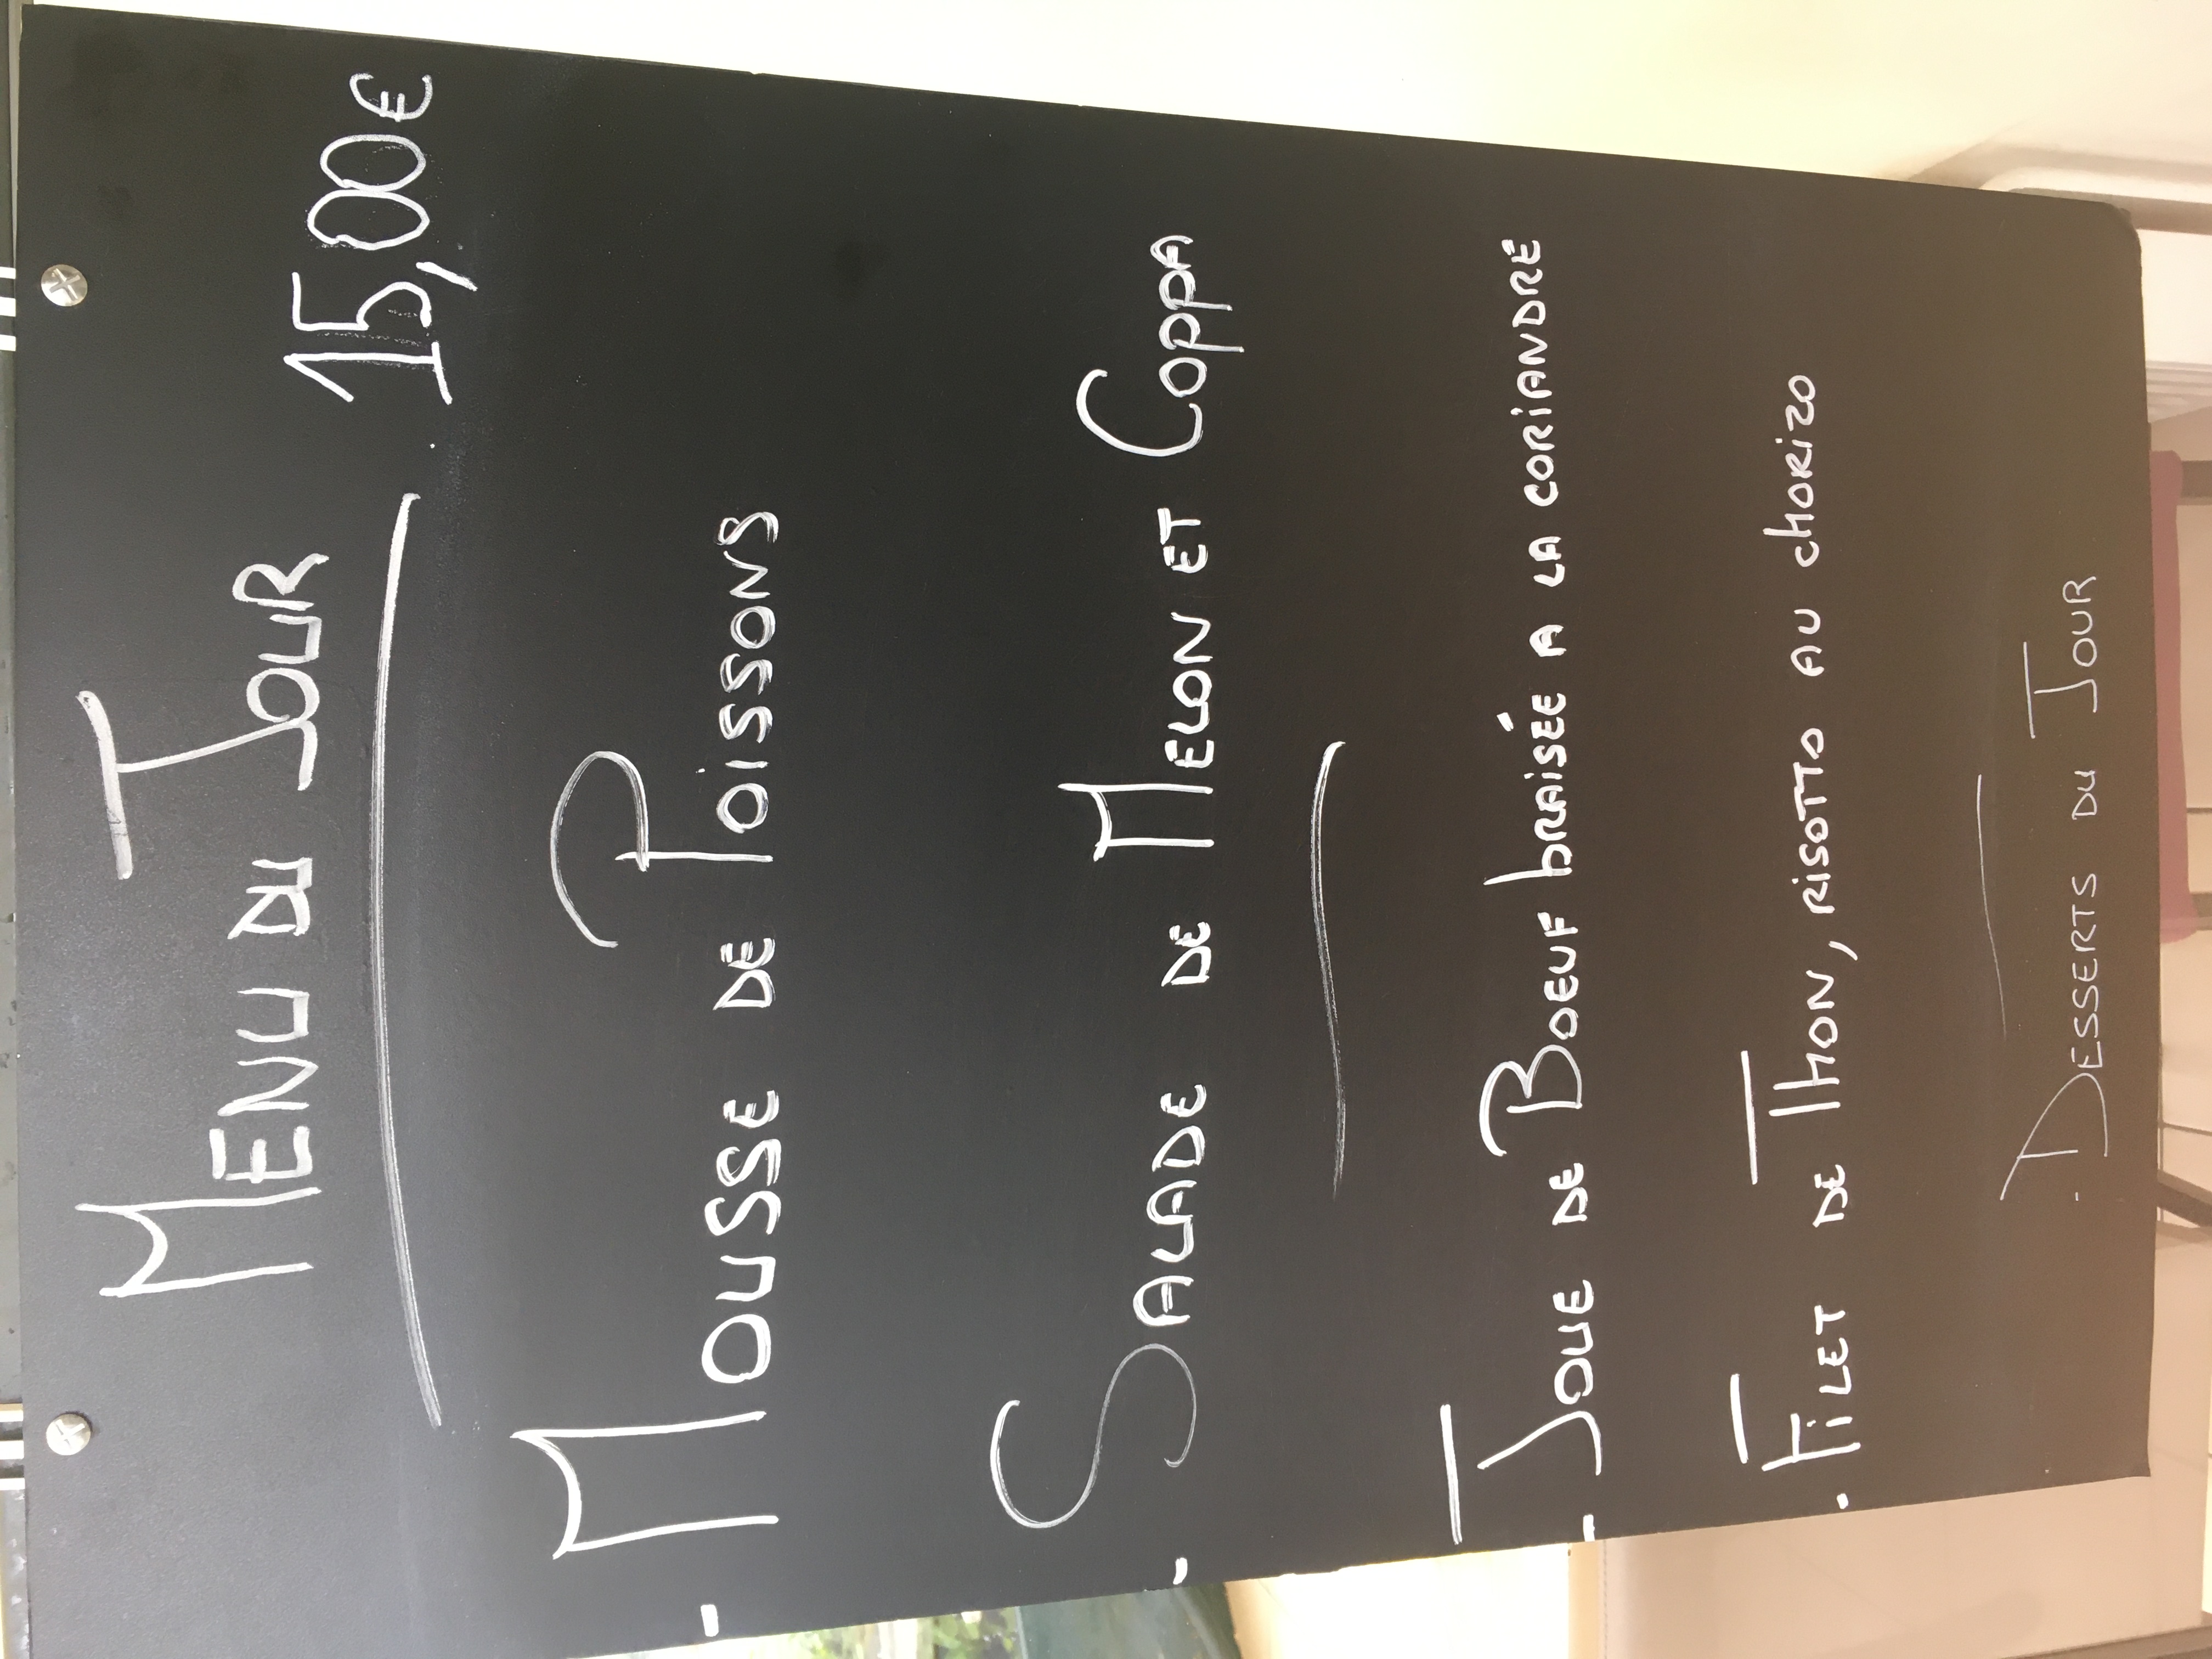 MENU DU JOUR
15,00€
- MOUSSE DE POISSONS
- SALADE DE MELON ET COPPA
- JOUE DE BOEUF bRAISÉE A LA CORIANDRE
- FILET DE THON, RISOTTO AU CHORIZO
- DESSERTS DU JOUR